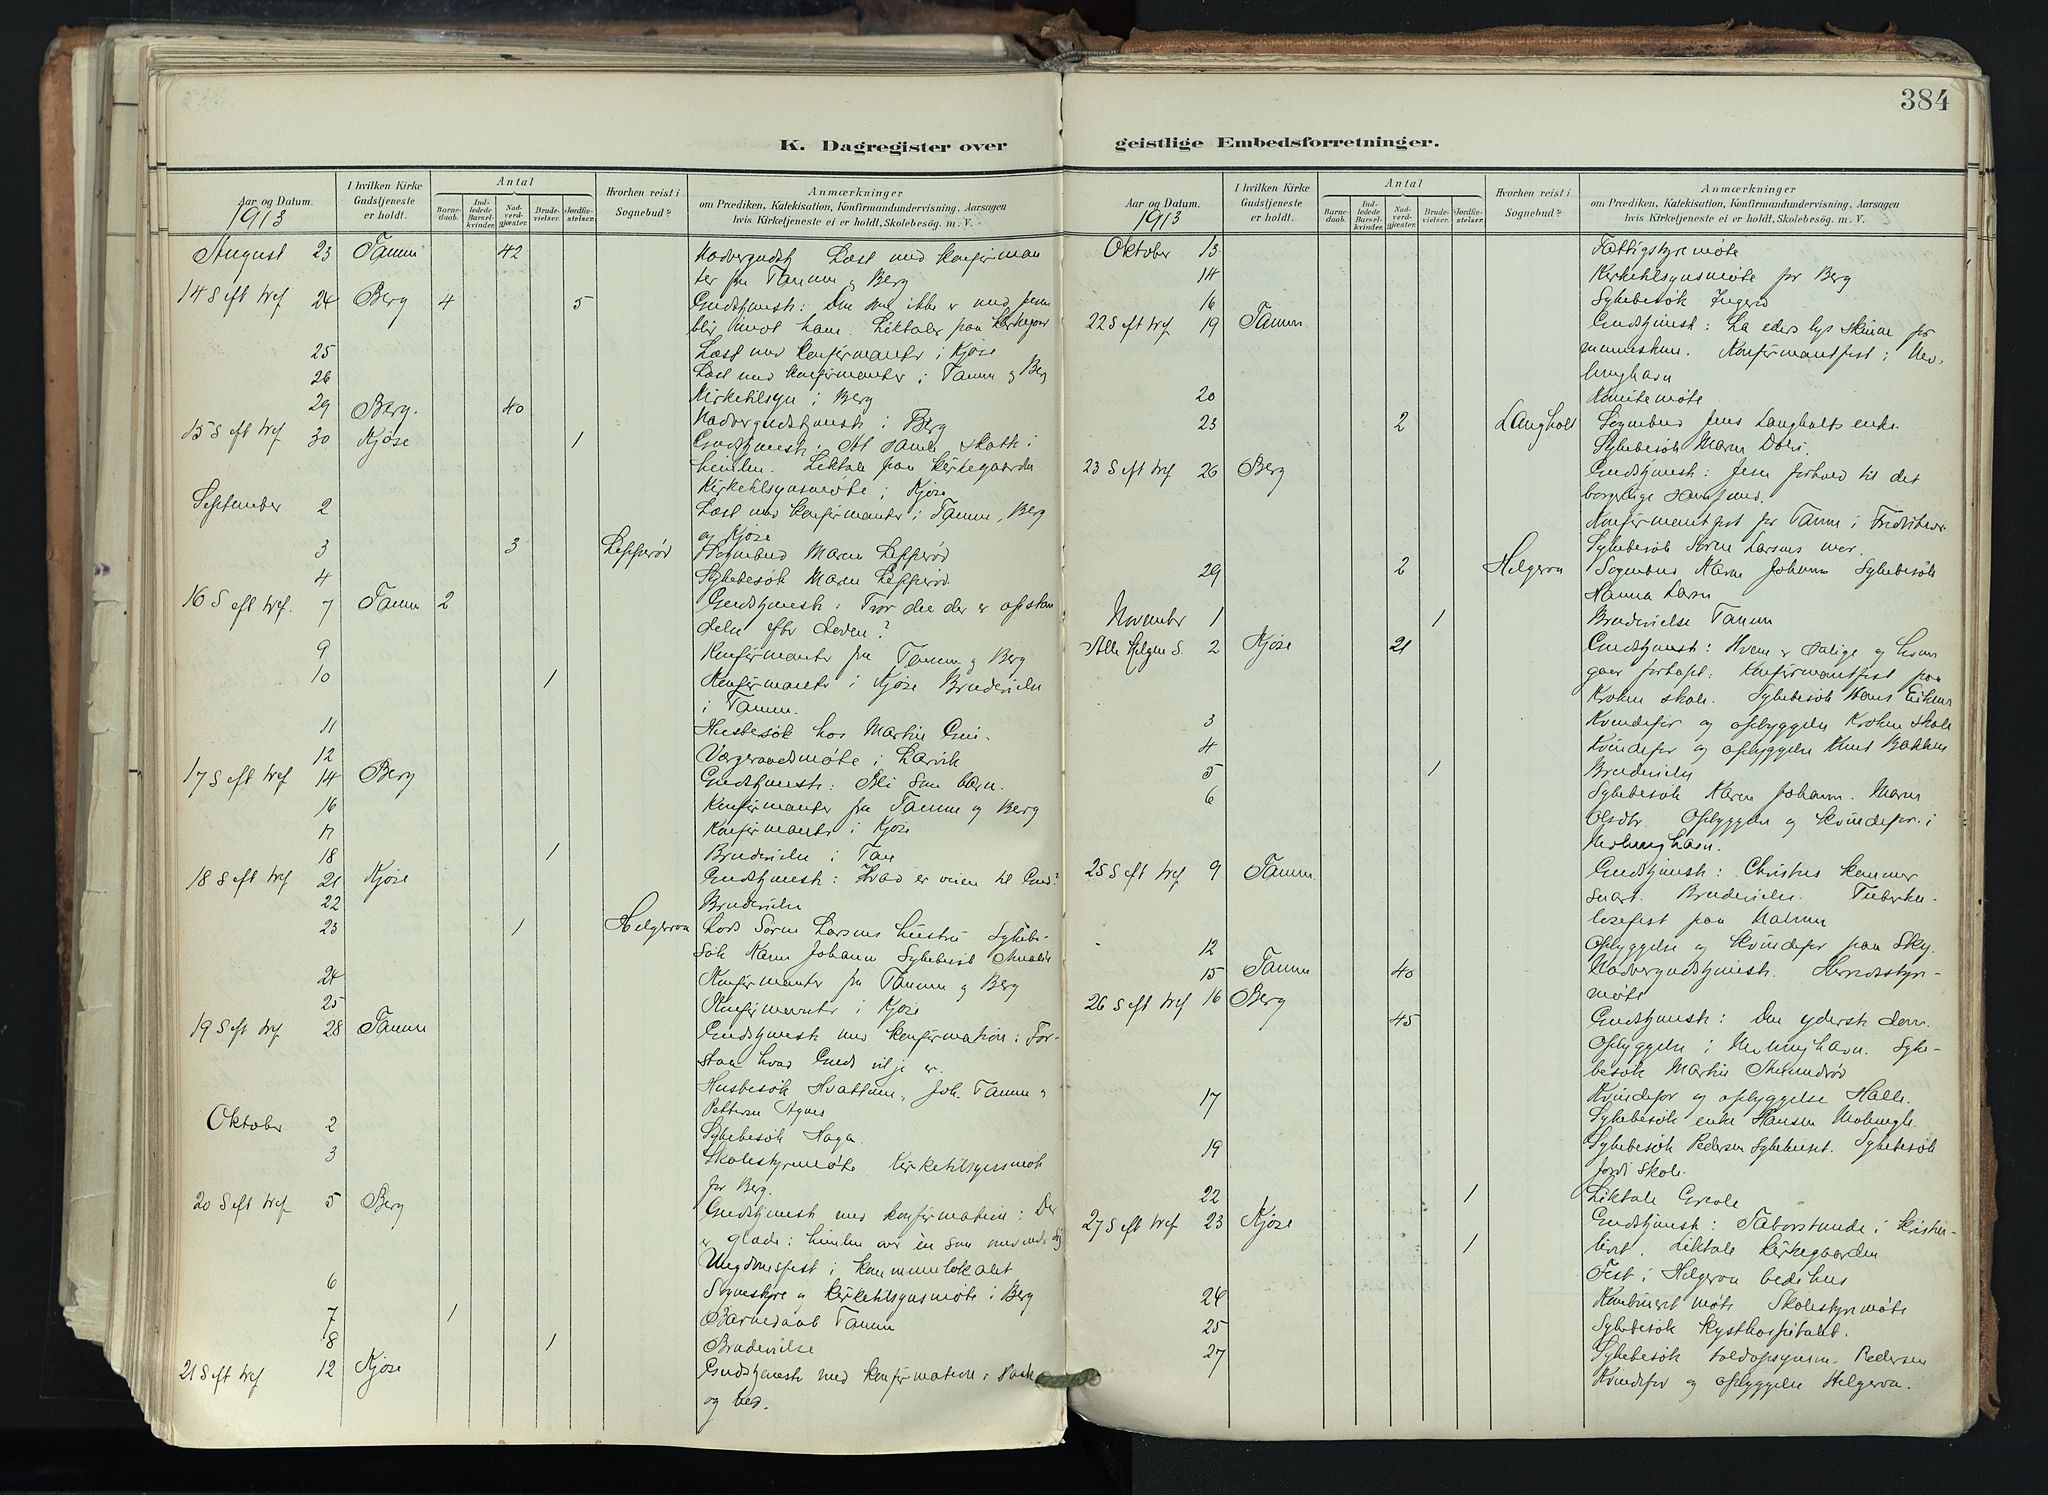 384
K. Dagregister over geistlige Embedsforretninger.
Aar og Datum.
I hvilken Kirke Gudstjeneste er holdt.
Antal
Barnedaab.
Indledede Barselkvinder.
Nadverdgjæster.
Brudevielser.
Jordfæstelser.
Hvorhen reist i Sognebud?
Anmærkninger
om Prædiken, Katekisation, Konfirmandundervisning, Aarsagen
hvis Kirketjeneste ei er holdt, Skolebesøg. m. V.
1913
August 23 Tanum 42 Nadvergudstj Læst med konfirman
ter fra Tanum og Berg
14 S eft tref 24 Berg 4 5 Gudstjenest: Den som ikke er med
blir imot ham. Liktaler paa kirkegaar
25 Læst med konfirmanter i Kjøse
26 Læst med konfirmanter i Tanum og Berg
Kirketilsyn i Berg
29 Berg. 40 Nadvergudstjenest i Berg
15 S eft tref 30 Kjøse 1 Gudstjenest: At samle skatt i
himlen. Liktale paa kirkegaarden
Kirketilsynsmøte i Kjøse
September 2 Læst med konfirmanter i Tanum, Berg
og Kjøse
3 3 Lepperød Sognebud Maren Lepperød
4 Sykebesøk Maren Lepperød
16 S eft tref. 7 Tanum 2 Gudstjenest: Tror du der er opstan
delse efter døden?
9 Konfirmanter fra Tanum og Berg
10 1 Konfirmanter i Kjøse Brudevielse
i Tanum.
11 Husbesøk hos Martin
12 Værgeraadsmøte i Larvik
17 S eft tref 14 Berg Gudstjenest: Bli som barn.
16 Konfirmanter fra Tanum og Berg
17 Konfirmanter i Kjøse
18 1 Brudevielse i Tan
18 S eft tref 21 Kjøse Gudstjenest: Hvad er veien til Gud?
22 Brudevielse
23 1 Helgeroa Lods Sørn Larsens hustru. Sykebe-
søk Karen Johanne Sykebesøk
24 Konfirmanter fra Tanum og Berg
25 Konfirmanter i Kjøse
19 S eft tref 28 Tanum Gudstjenest med konfirmation: For-
staa hvad Guds vilje er.
Husbesøk Hvattum, Joh. Tanum og
Petteren Agnes
Oktober 2 Sykebesøk Haga.
3 Skolestyremøte. Kirketilsynsmøt
for Berg.
20 S eft tref 5 Berg Gudstjenest med konfirmation: Der
er glæde i himlen over én som omvender sig
Ungdomsfest i kommunelokalet
6 Sognestyre og kirketilsynsmøte i Berg
7 1 Barnedaab Tanum
8 1 Brudevielse
21 S eft tref 12 Kjøse Gudstjeneste med konfirmation:
og bed.
Aar og Datum.
I hvilken Kirke Gudstjeneste er holdt.
Antal
Barnedaab.
Indledede Barselkvinder.
Nadverdgjæster.
Brudevielser.
Jordfæstelser.
Hvorhen reist i Sognebud?
Anmærkninger
om Prædiken, Katekisation, Konfirmandundervisning, Aarsagen
hvis Kirketjeneste ei er holdt, Skolebesøg. m. V.
1913
Oktober 13 Fattigstyremøte
14 Kirketilsynsmøte for Berg
16 Sykebesøk Ingerid
22 S eft tref 19 Tanum Gudstjenest: La eders lys skinne for
menneskene. Konfirmantfest i Nev-
lunghavn
20 Komitemøte
23 2 Langholt Sognebud Jens Langholts enke.
Sykebesøk Maren
23 S eft tref 26 Berg Gudstjenest: Jesu forhold til det
borgerlige samfund.
Konfirmantfest for Tanum i
Sykebesøk Sørn Larsens
29 2 Helgeroa Sognebud Karen Johanne Sykebesøk
Hanna Larsen
November 1 1 Brudevielse Tanum
Alle Helgen S. 2 Kjøse 21 Gudstjenest: Hvem er salige og hvem
gaar fortapt. Konfirmantfest paa
Krohn skole. Sykebesøk Hans
3 Kvindefor og opbyggelse Krohn skole
4 Kvindefor og opbyggelse Knut Bakken
5 1 Brudevielse
6 Sykebesøk Karen Johanne. Maren
Olsdtr. Opbyggelse og kvindefor. i
Nevlunghavn.
25 S eft tref 9 Tanum. Gudstjenest: Christus kommer
snart. Brudevielse. Tuberku-
losefest paa
12 Opbyggelse og kvindefor paa Sky.
15 Tanum 40 Nadvergudstjenest. Herredsstyre-
møte
26 S eft tref 16 Berg 45 Gudstjenest: Den yderste dom.
Opbyggelse i Nevlunghavn. Syke-
besøk Martin
17 Kvindefor og opbyggelse Halle.
Sykebesøk enke Hansen Nevlungh.
19 Sykebesøk Pedersen Sykehuset. Sykebesøk
skole.
22 1 Liktale
27 S eft tref 23 Kjøse 1 Gudstjenest: Taborstunde i kristen-
livet. Liktale kirkegaarden
Fest i Helgeroa bedehus
24 Kombinert møte Skolestyremøte
25 Sykebesøk kysthospitalet.
27 Sykebesøk toldopsynsm. Pedersen
Kvindefor og opbyggelse Helgeroa.